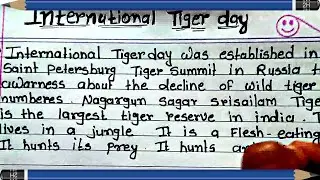 International Tiger day
International Tiger day was established in
Saint Petersburg Tiger Summit in Russia t
awarness about the decline of wild tiger
numberes. Nagargun Sagar Srisailam Tig
is the largest tiger reserve in india. T
lives in a jungle. It is a Flesh-eating
It hunts its prey. It hunts